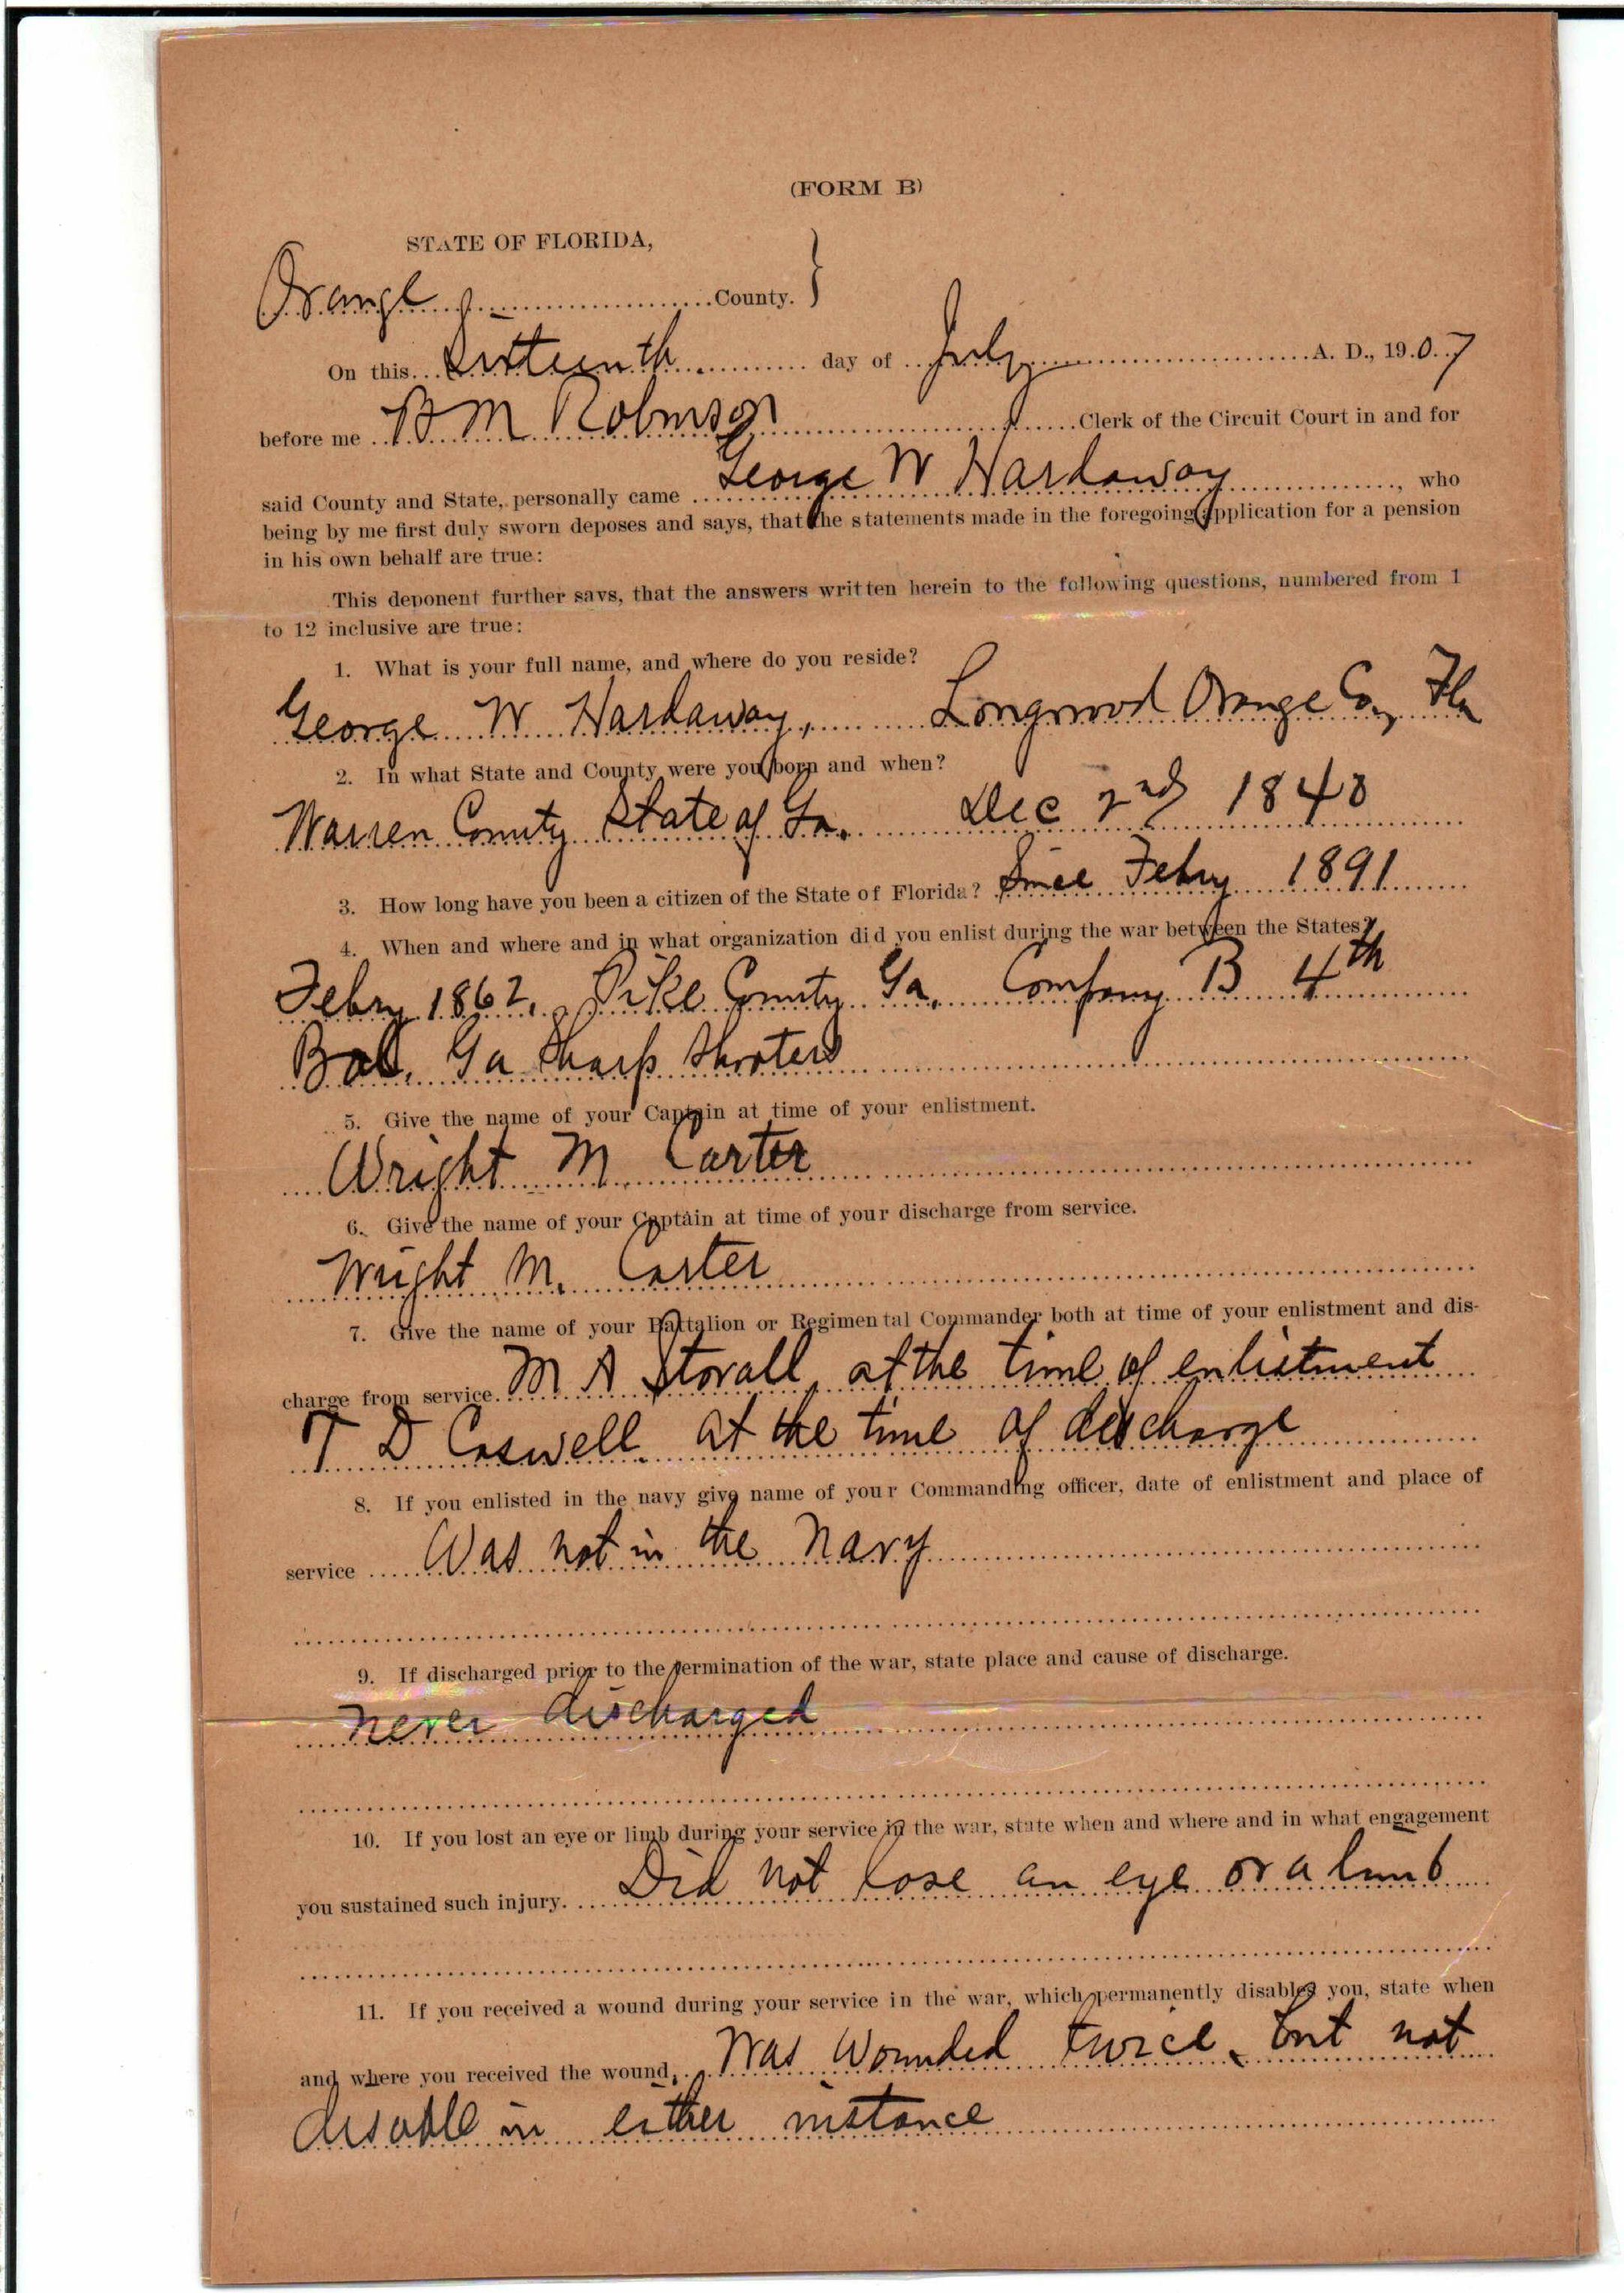 (FORM B)
STATE OF FLORIDA,
Orange County.
On this Sixteenth day of July A. D., 1907
before me B M Robinson Clerk of the Circuit Court in and for
said County and State, personally came George W Hardaway, who
being by me first duly sworn deposes and says, that the statements made in the foregoing application for a pension
in his own behalf are true:
This deponent further says, that the answers written herein to the following questions, numbered from 1
to 12 inclusive are true:
1. What is your full name, and where do you reside?
George W Hardaway, Longwood Orange Co, Fla
2. In what State and County were you born and when?
Warren County State of Ga. Dec 2nd 1840
3. How long have you been a citizen of the State of Florida? Since Febry 1891
4. When and where and in what organization did you enlist during the war between the States?
Febry 1862, Pike County Ga, Company B 4th
Bat. Ga Sharp Shooters
5. Give the name of your Captain at time of your enlistment.
Wright M Carter
6. Give the name of your Captain at time of your discharge from service.
Wright M. Carter
7. Give the name of your Battalion or Regimental Commander both at time of your enlistment and dis-
charge from service. M A Stovall, at the time of enlistment
T D Caswell at the time of discharge
8. If you enlisted in the navy give name of your Commanding officer, date of enlistment and place of
service Was not in the Navy
9. If discharged prior to the termination of the war, state place and cause of discharge.
never discharged
10. If you lost an eye or limb during your service in the war, state when and where and in what engagement
you sustained such injury. Did not lose an eye or a limb
11. If you received a wound during your service in the war, which permanently disables you, state when
and where you received the wound, Was Wounded twice, but not
disable in either instance